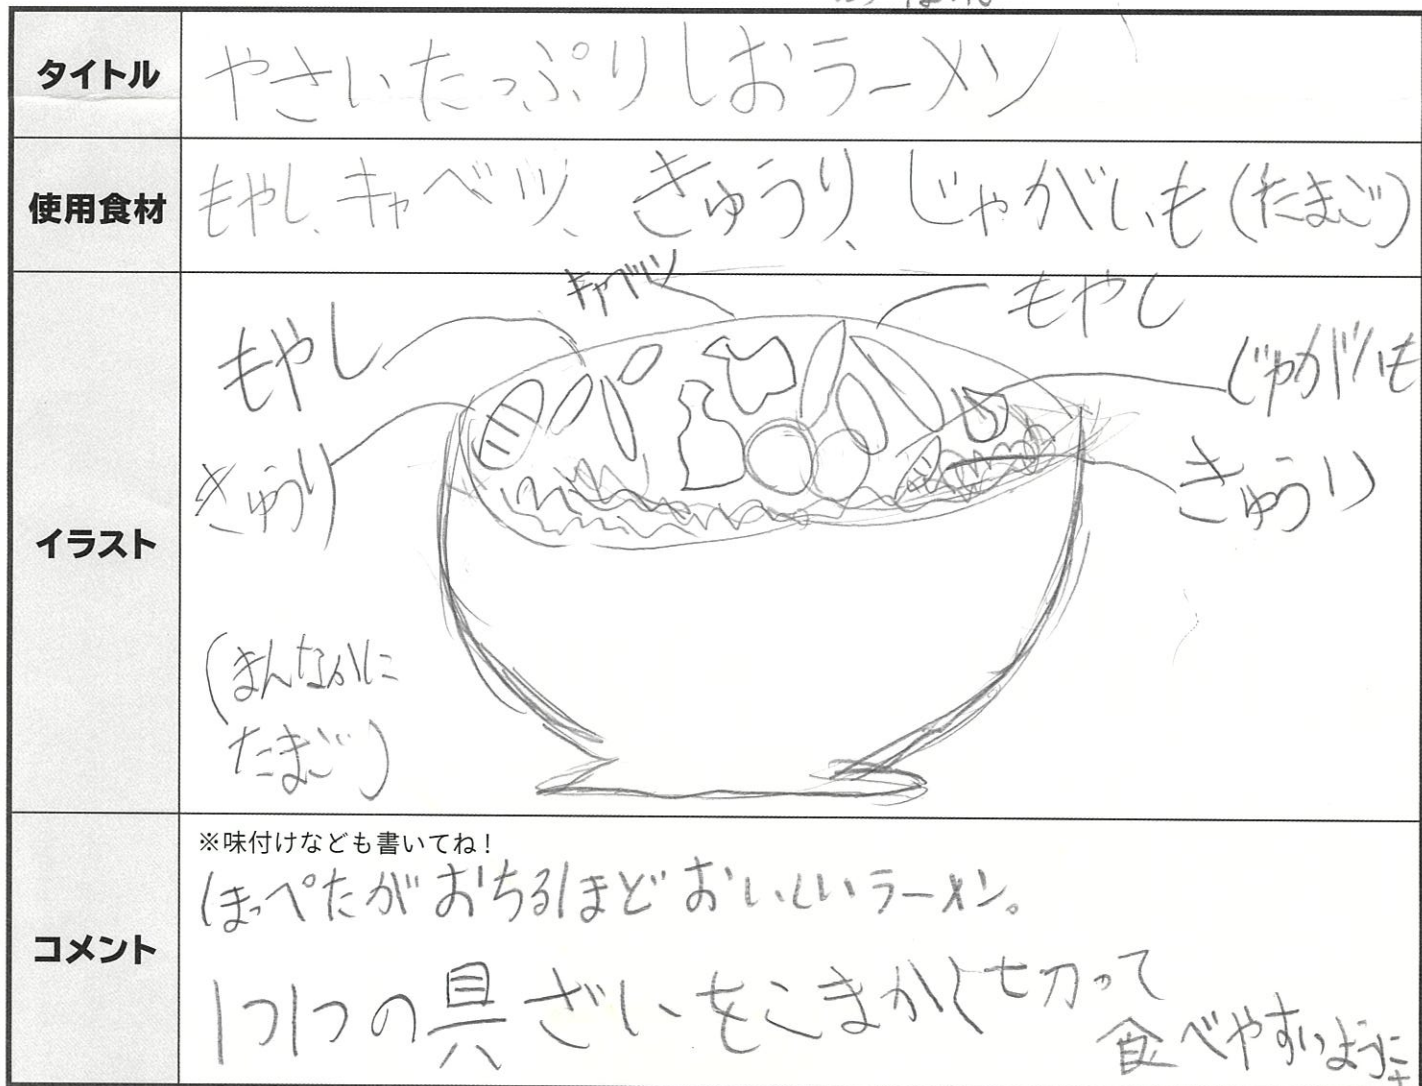 タイトル
やさいたっぷりしおラーメン
使用食材
もやし、キャベツ、きゅうり、じゃがいも(たまご)
イラスト
キャベツ
もやし
もやし
じゃがいも
きゅうり
きゅうり
(まんなかに
たまご)
コメント
※味付けなども書いてね!
ほっぺたがおちるほどおいしいラーメン。
1つ1つの具ざいをこまかく切って
食べやすいように